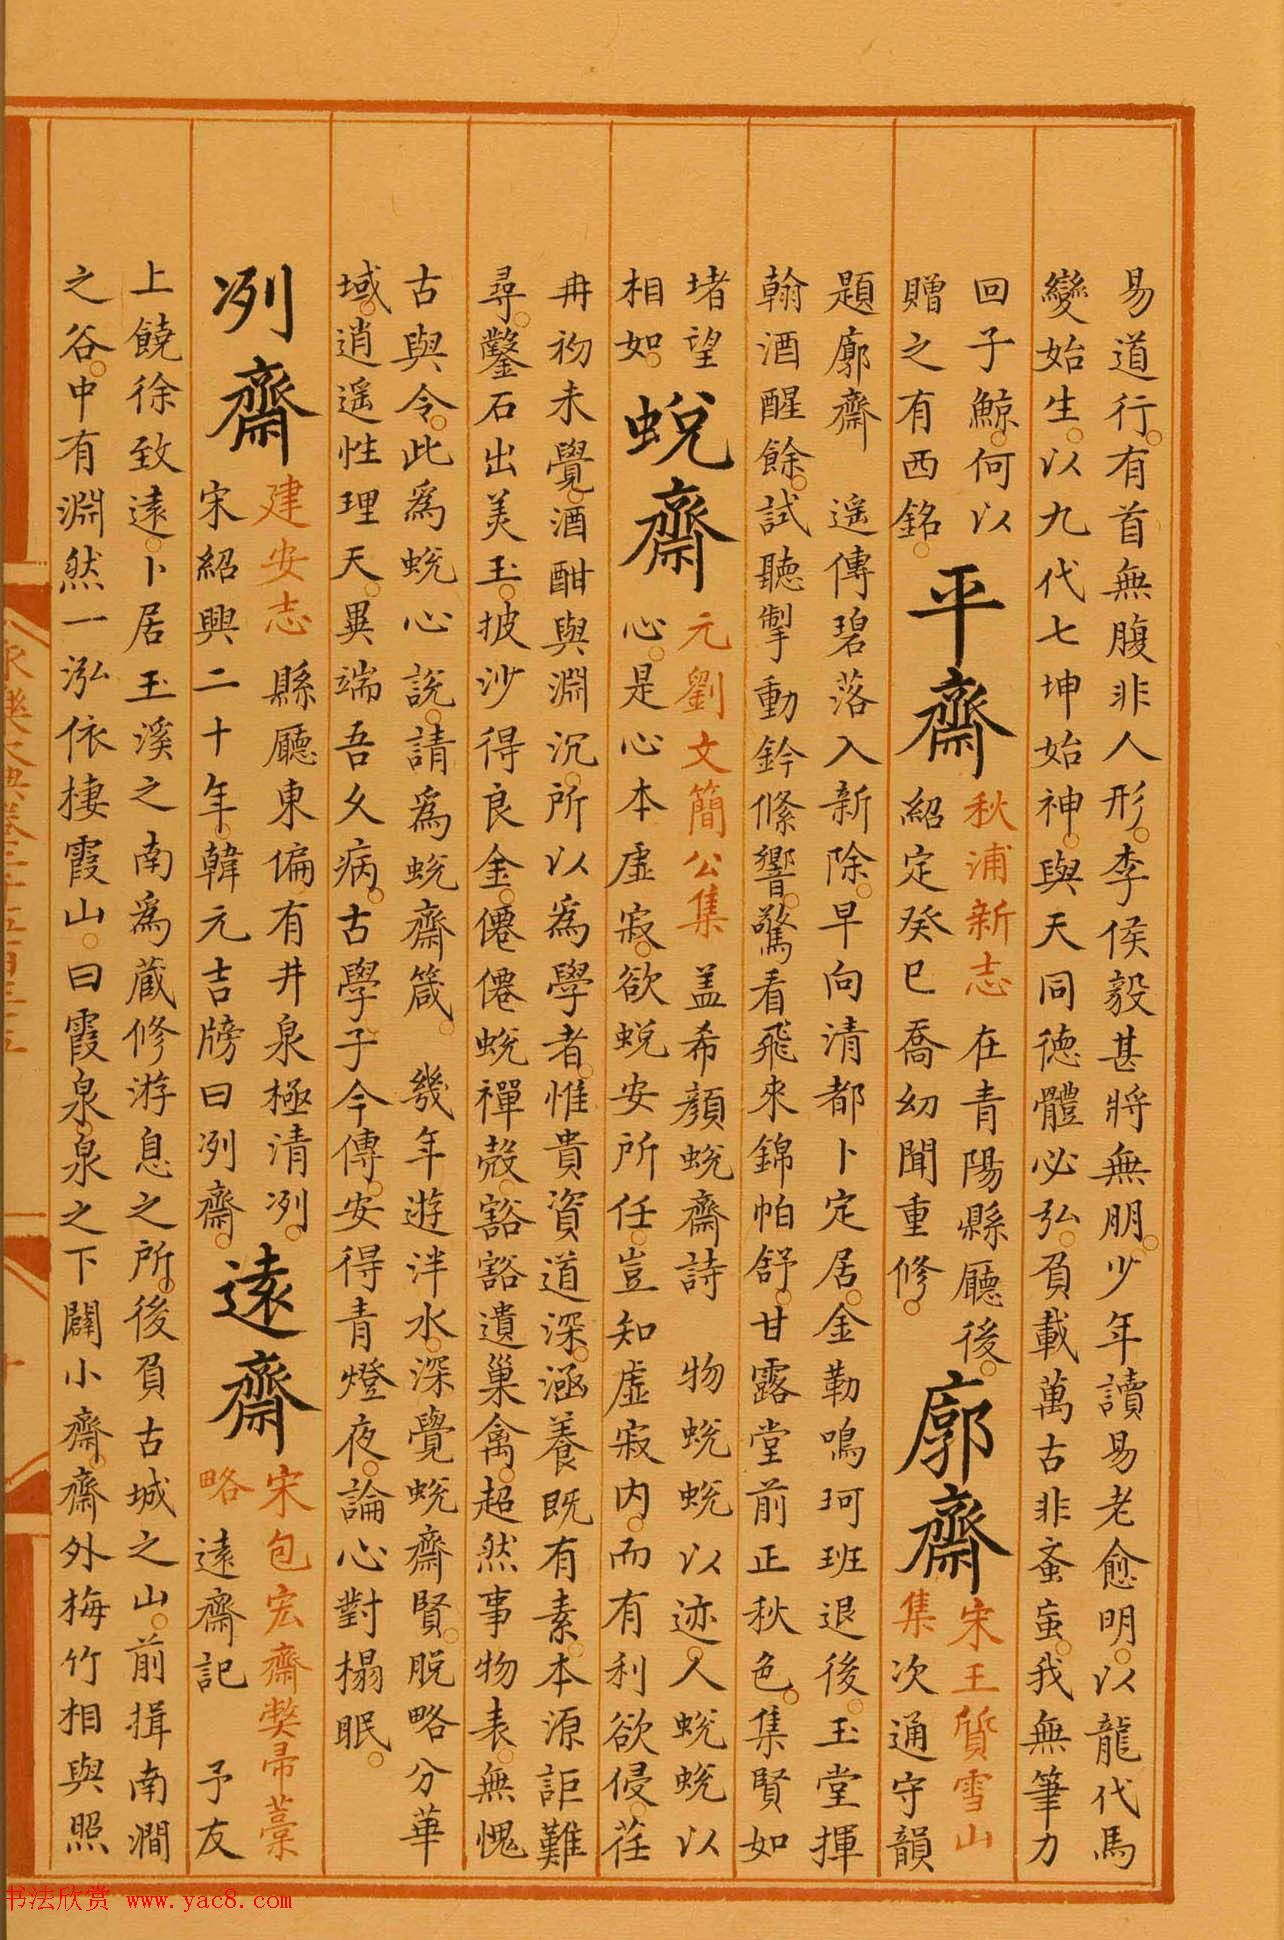 易道行有首無腹非人形李侯毅甚將無朋少年讀易老愈明以龍代馬
變始生以九代七坤始神與天同德體必弘負載萬古非蚉䖟我無筆力
回子鯨何以
贈之有西銘
平齋
秋浦新志
在青陽縣廳後
紹定癸巳喬幼聞重修
廓齋
宋王質雪山
集
次通守韻
題廓齋 遥傳碧落入新除早向清都卜定居金勒鳴珂班退後玉堂揮
翰酒醒餘試聽掣動鈐絛響驚看飛來錦帕舒甘露堂前正秋色集賢如
堵望
相如
蛻齋
元劉文簡公集
盖希顏蛻齋詩 物蛻蛻以迹人蛻蛻以
心是心本虛寂欲蛻安所任豈知虛寂内而有利欲侵荏
冉初未覺酒酣與淵沉所以為學者惟貴資道深涵養既有素本源詎難
尋鑿石出美玉披沙得良金僊僊蛻禪殼豁豁遺巢禽超然事物表無愧
古與令此爲蛻心說請爲蛻齋箴 幾年遊泮水深覺蛻齋賢脱略分華
域逍遥性理天異端吾久病古學子今傳安得青燈夜論心對榻眠
冽齋
建安志
縣廳東偏有井泉極清冽
宋紹興二十年韓元吉牓曰冽齋
遠齋
宋包宏齋獘帚藁
略
遠齋記 予友
上饒徐致遠卜居玉溪之南爲藏修游息之所後負古城之山前揖南澗
之谷中有淵然一泓依棲霞山曰霞泉泉之下闢小齋齋外梅竹相與照
永樂大典卷二千五百三十五
书法欣赏 www.yac8.com